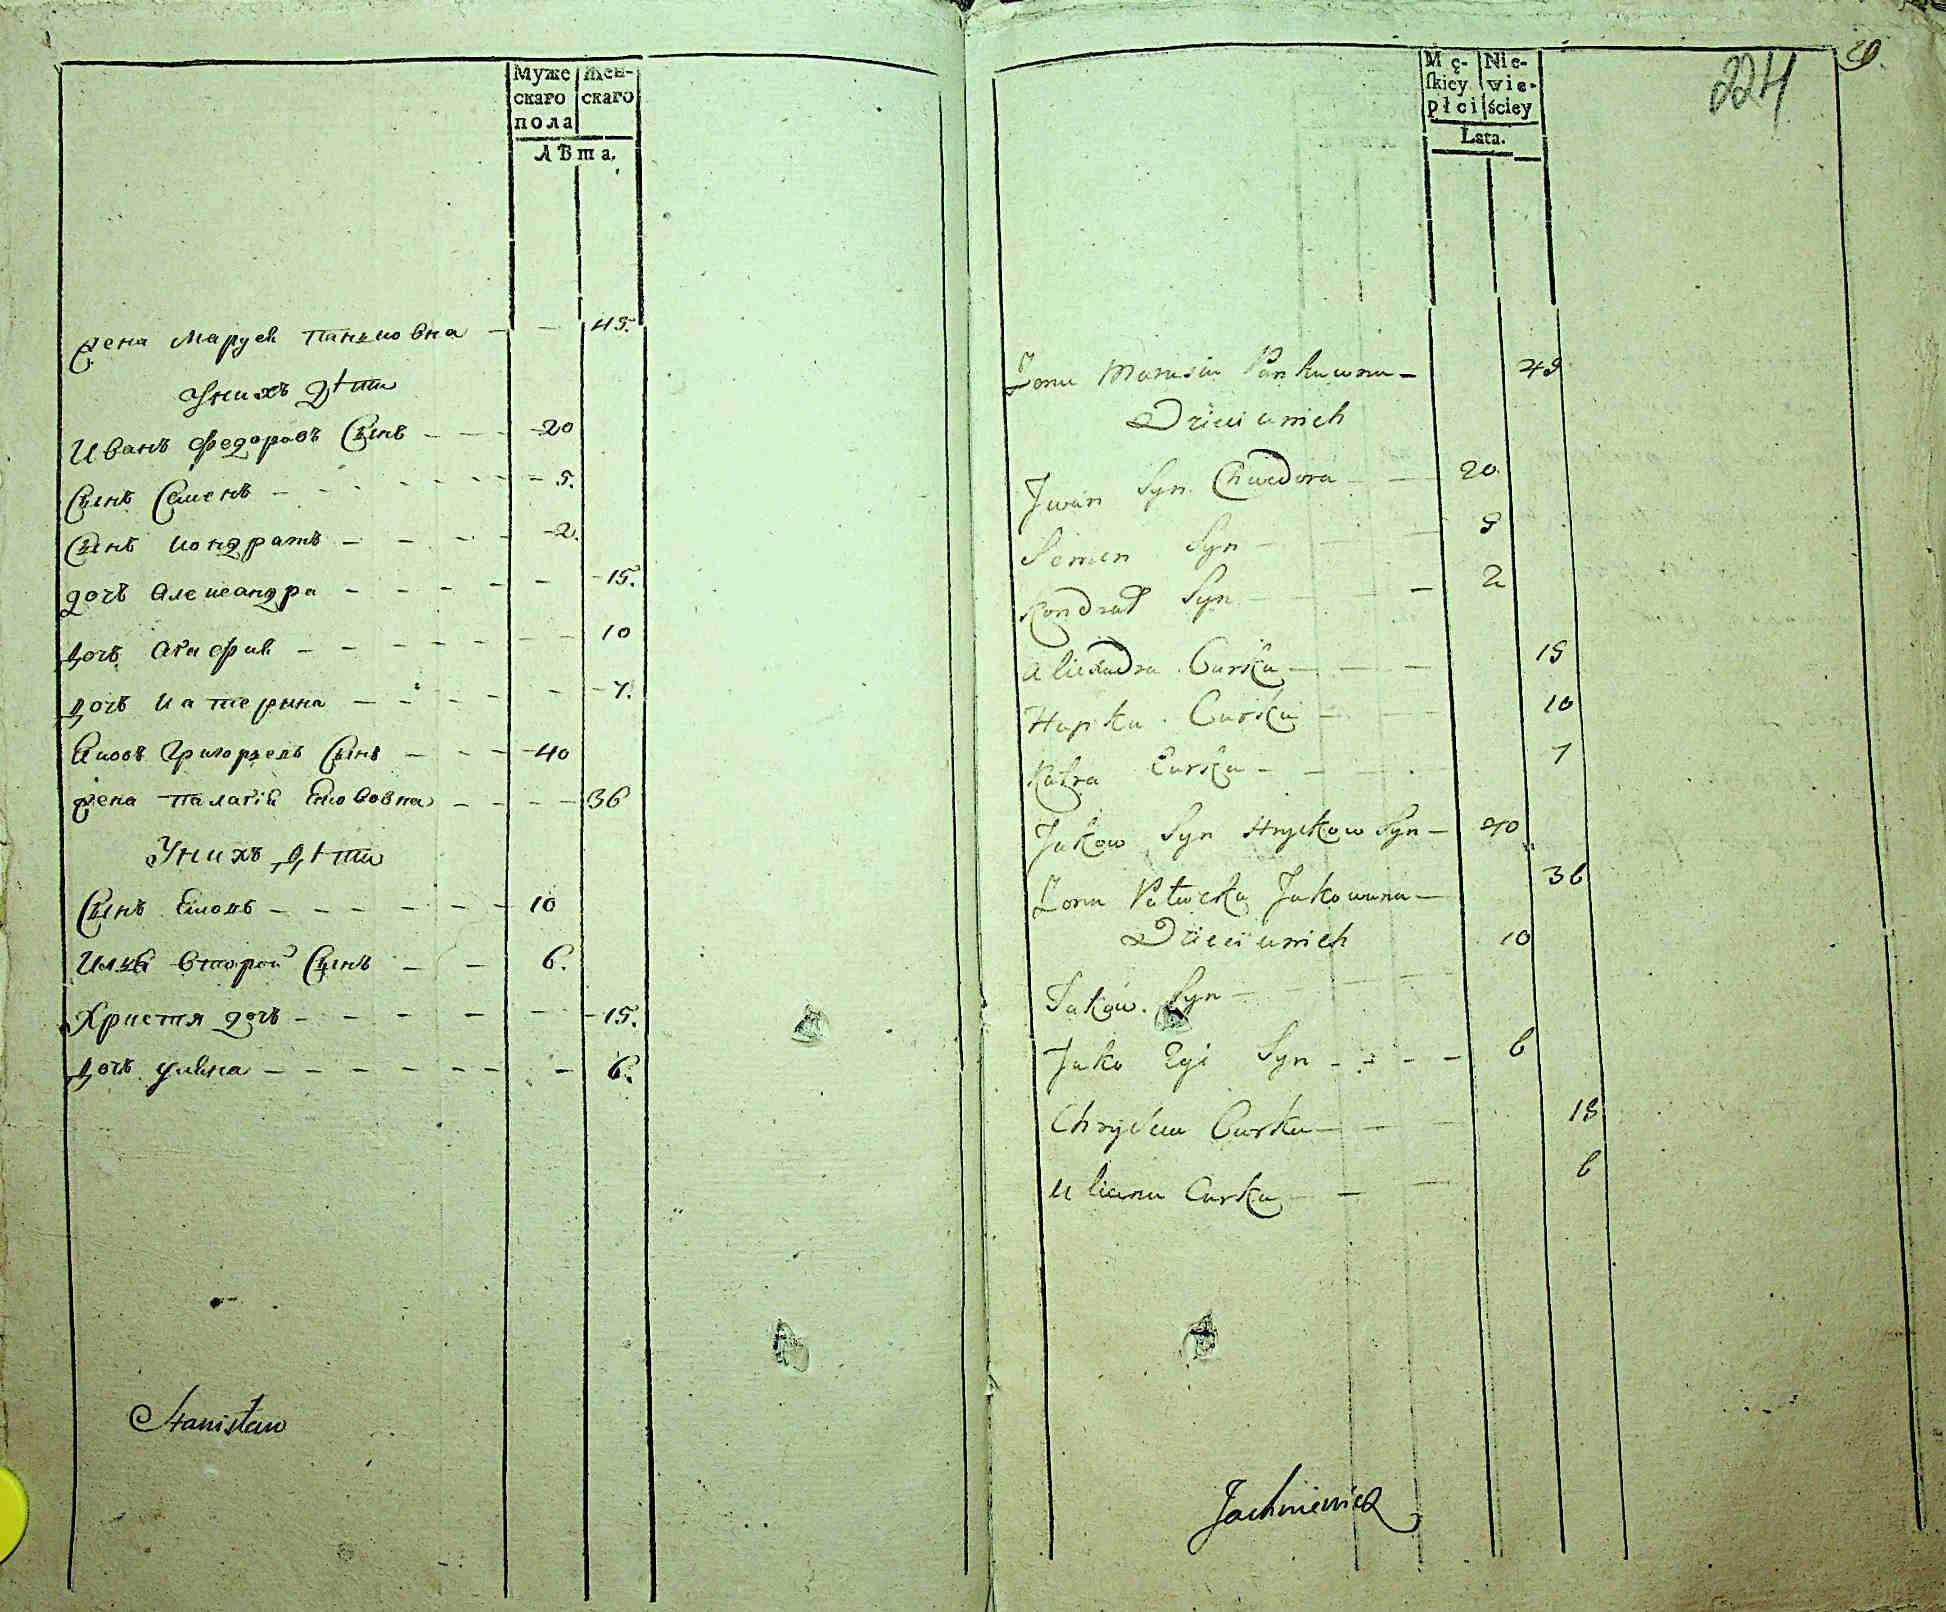 Муже Жен-
скаго скаго
пола
Лѣта.
жена Маруся Панковна 45.
У нихъ дѣти
Иванъ Федоровъ Сынъ 20
Сынъ Семенъ 5.
Сынъ Кондратъ 2.
дочь Александра 15.
дочь Агафия 10
дочь Катерина 7.
Яковъ Григорьевъ Сынъ 40
жена Палагія Якововна 36
У нихъ дѣти
Сынъ Яковъ 10
второй Сынъ 6.
Христя дочь 15.
дочь Уляна 6.
Stanisław
29.
224
Mę- Nie-
skiey wie-
płci ściey
Lata.
Zona Marusia Pankuwna 45
Dzieci u nich
Jwan Syn Chwedora 20
Semen Syn 5
Kondrat Syn 2
Alexadra Curka 15
Hapka Curka 10
Katra Curka 7
Jakow Syn Hryckow Syn 40
Zona Jakowuna 36
Dzieci u nich 10
Jaków Syn
Syn 6
Curka 15
Uliana Curka 6
Jachniewicz